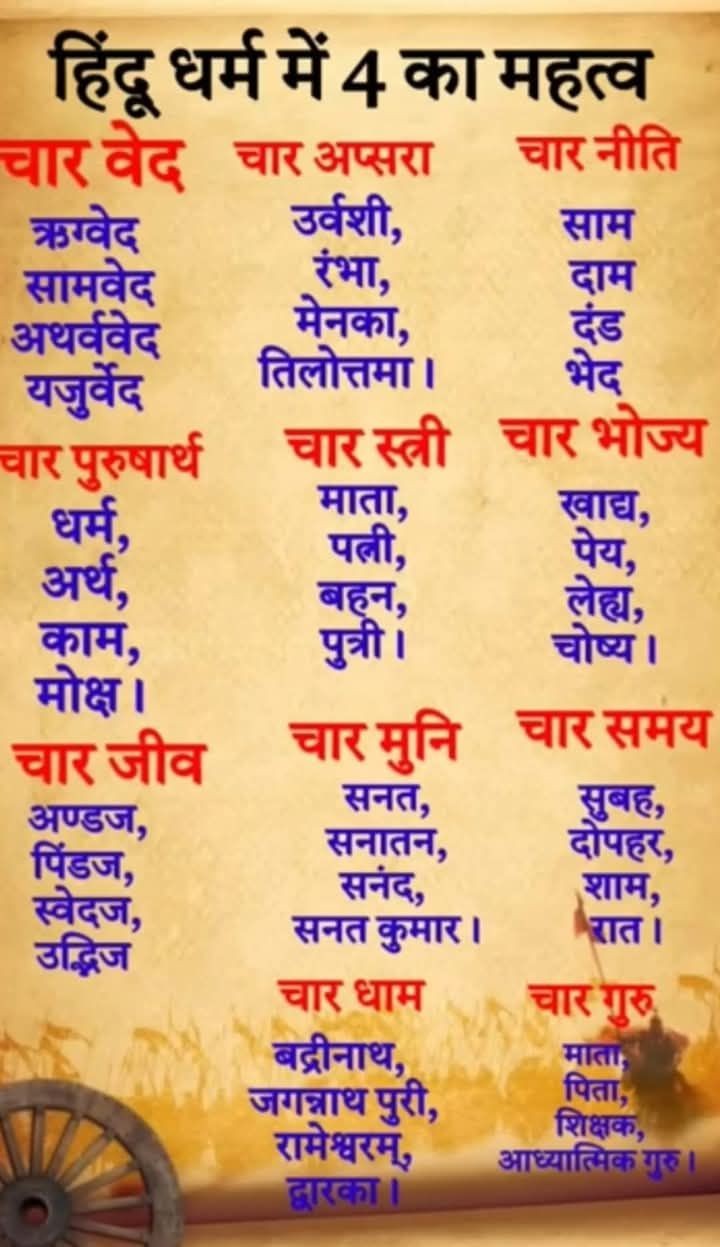 हिंदू धर्म में 4 का महत्व
चार वेद
ऋग्वेद
सामवेद
अथर्ववेद
यजुर्वेद
चार अप्सरा
उर्वशी,
रंभा,
मेनका,
तिलोत्तमा।
चार नीति
साम
दाम
दंड
भेद
चार पुरुषार्थ
धर्म,
अर्थ,
काम,
मोक्ष।
चार स्त्री
माता,
पत्नी,
बहन,
पुत्री।
चार भोज्य
खाद्य,
पेय,
लेह्य,
चोष्य।
चार जीव
अण्डज,
पिंडज,
स्वेदज,
उद्भिज
चार मुनि
सनत,
सनातन,
सनंद,
सनत कुमार।
चार समय
सुबह,
दोपहर,
शाम,
रात।
चार धाम
बद्रीनाथ,
जगन्नाथ पुरी,
रामेश्वरम्,
द्वारका।
चार गुरु
माता,
पिता,
शिक्षक,
आध्यात्मिक गुरु।